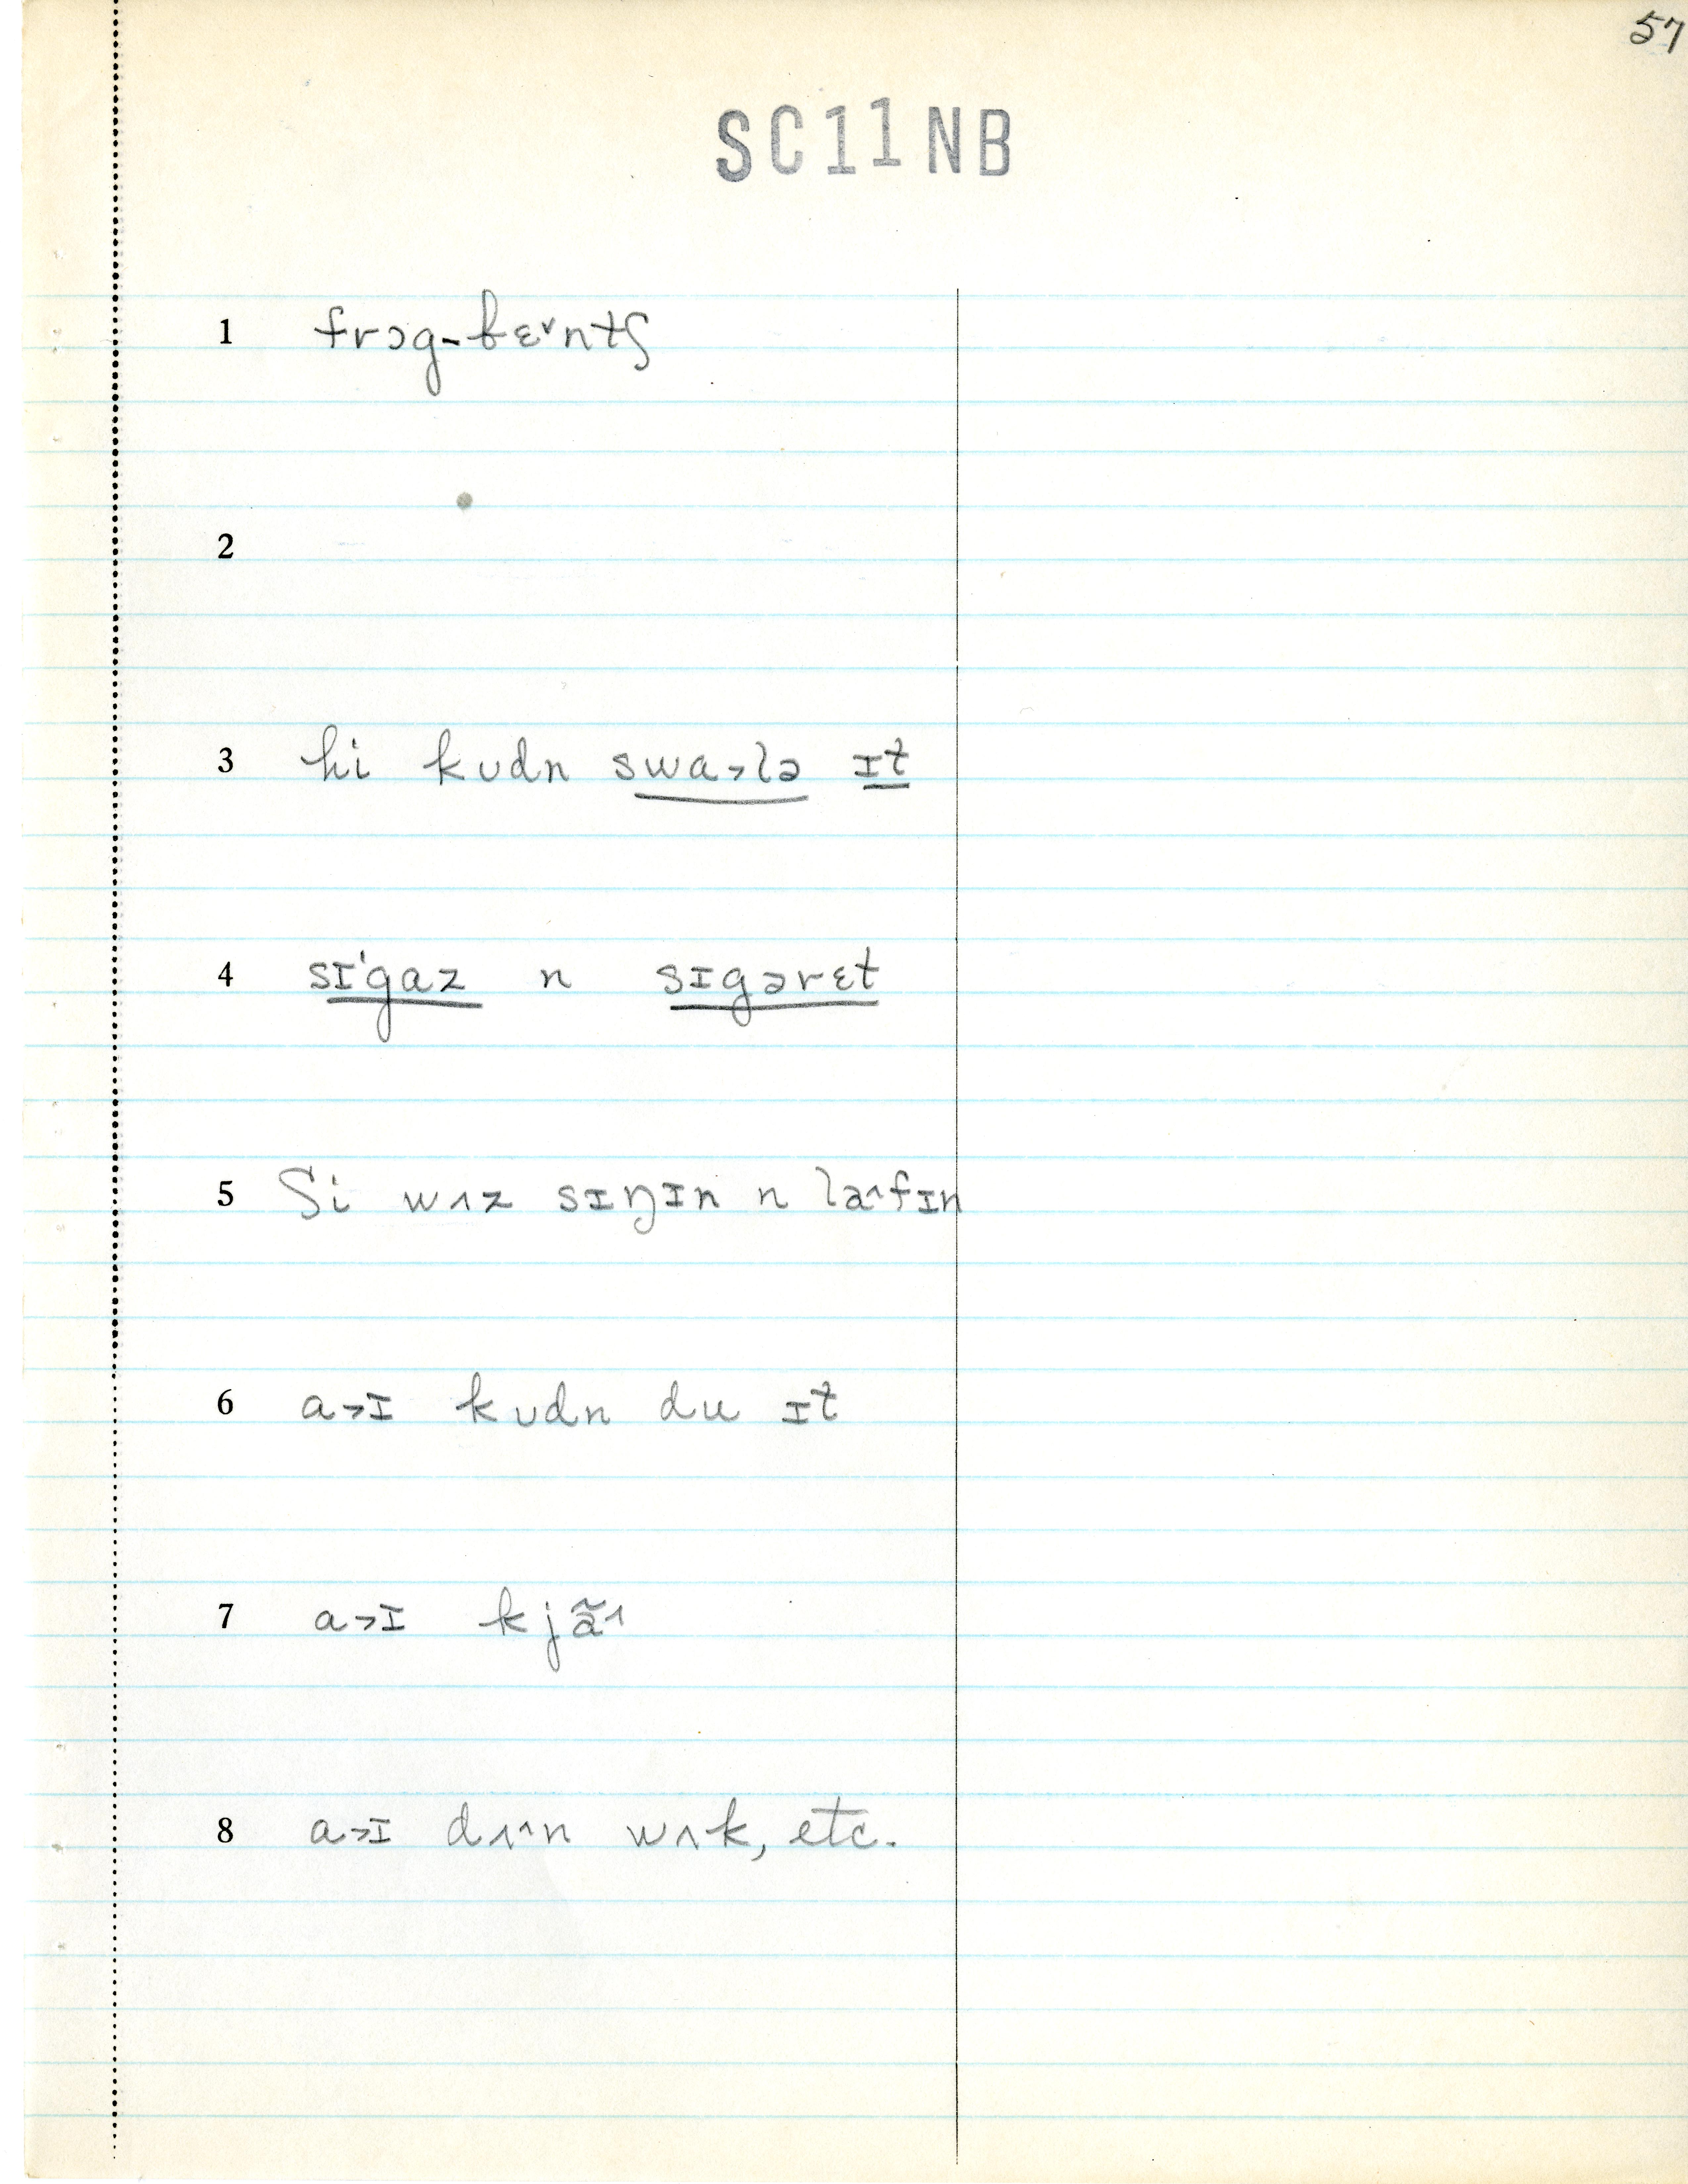 57
SC11NB
1 frɔg-bɛ˅ntʃ
2
3 hi kʊdn swa˃lə ɪt
4 sɪ'gaz n sɪgərɛt
5 ʃi wʌz sɪŋɪn n la˄fɪn
6 a˃ɪ kʊdn du ɪt
7 a˃ɪ kjã˄
8 a˃ɪ dʌ˄n wʌk, etc.